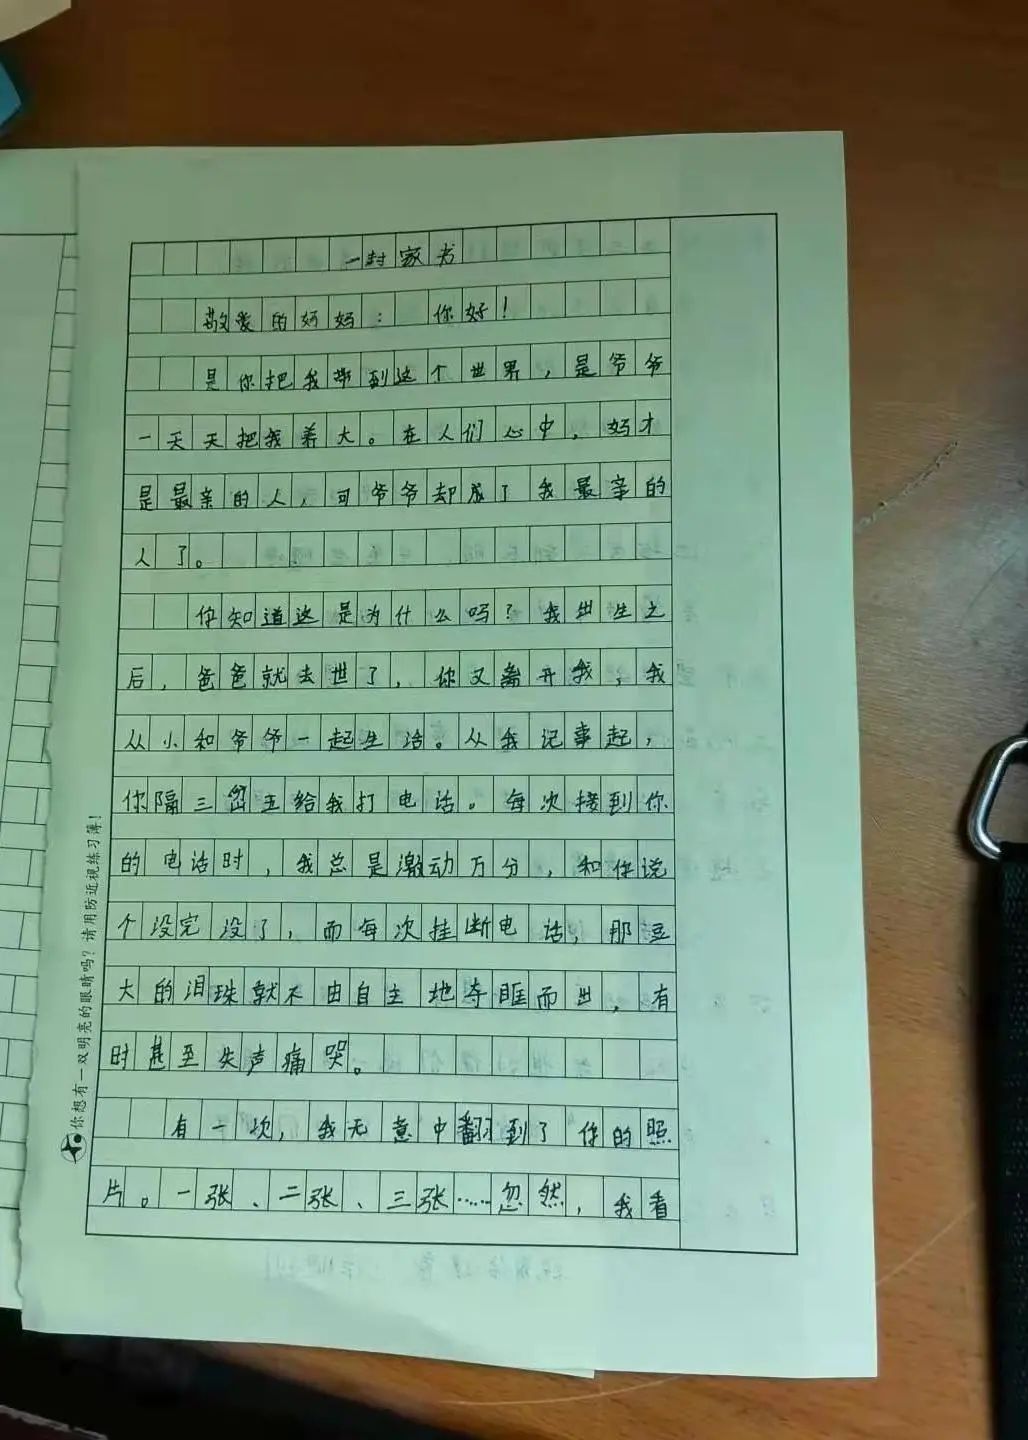 一封家书
敬爱的妈妈： 你好！
是你把我带到这个世界，是爷爷
一天天把我养大。在人们心中，妈才
是最亲的人，可爷爷却成了我最亲的
人了。
你知道这是为什么吗？我出生之
后，爸爸就去世了，你又离开我，我
从小和爷爷一起生活。从我记事起，
你隔三岔五给我打电话。每次接到你
的电话时，我总是激动万分，和你说
个没完没了，而每次挂断电话，那豆
大的泪珠就不由自主地夺眶而出，有
时甚至失声痛哭。
有一次，我无意中翻到了你的照
片。一张、二张、三张……忽然，我看
你想有一双明亮的眼睛吗？请用防近视练习簿！